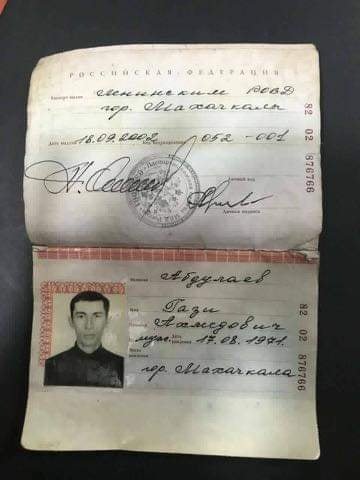 РОССИЙСКАЯ ФЕДЕРАЦИЯ
Паспорт выдан Ленинским РОВД
гор. Махачкалы
Дата выдачи 18.09.2002 Код подразделения 052-001
Личный код
Личная подпись
82 02 876766
Фамилия Абдулаев
Имя Гази
Отчество Ахмедович
муж. Дата рождения 17.08.1971.
Место рождения гор. Махачкала
82 02 876766